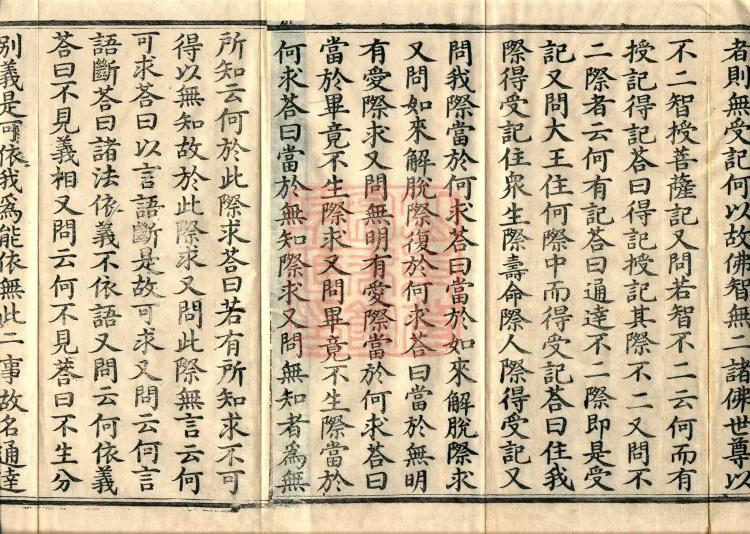 者則無受記何以故佛智無二諸佛世尊以
不二智授菩薩記又問若智不二云何而有
授記得記荅曰得記授記其際不二又問不
二際者云何有記荅曰通達不二際即是受
記又問大王住何際中而得受記荅曰住我
際得受記住衆生際壽命際人際得受記又
問我際當於何求荅曰當於如來解脫際求
又問如來解脫際復於何求荅曰當於無明
有愛際求又問無明有愛際當於何求荅曰
當於畢竟不生際求又問畢竟不生際當於
何求荅曰當於無知際求又問無知者為無
所知云何於此際求荅曰若有所知求不可
得以無知故於此際求又問此際無言云何
可求荅曰以言語斷是故可求又問云何言
語斷荅曰諸法依義不依語又問云何依義
荅曰不見義相又問云何不見荅曰不生分
別義是可依我為能依無此二事故名通達